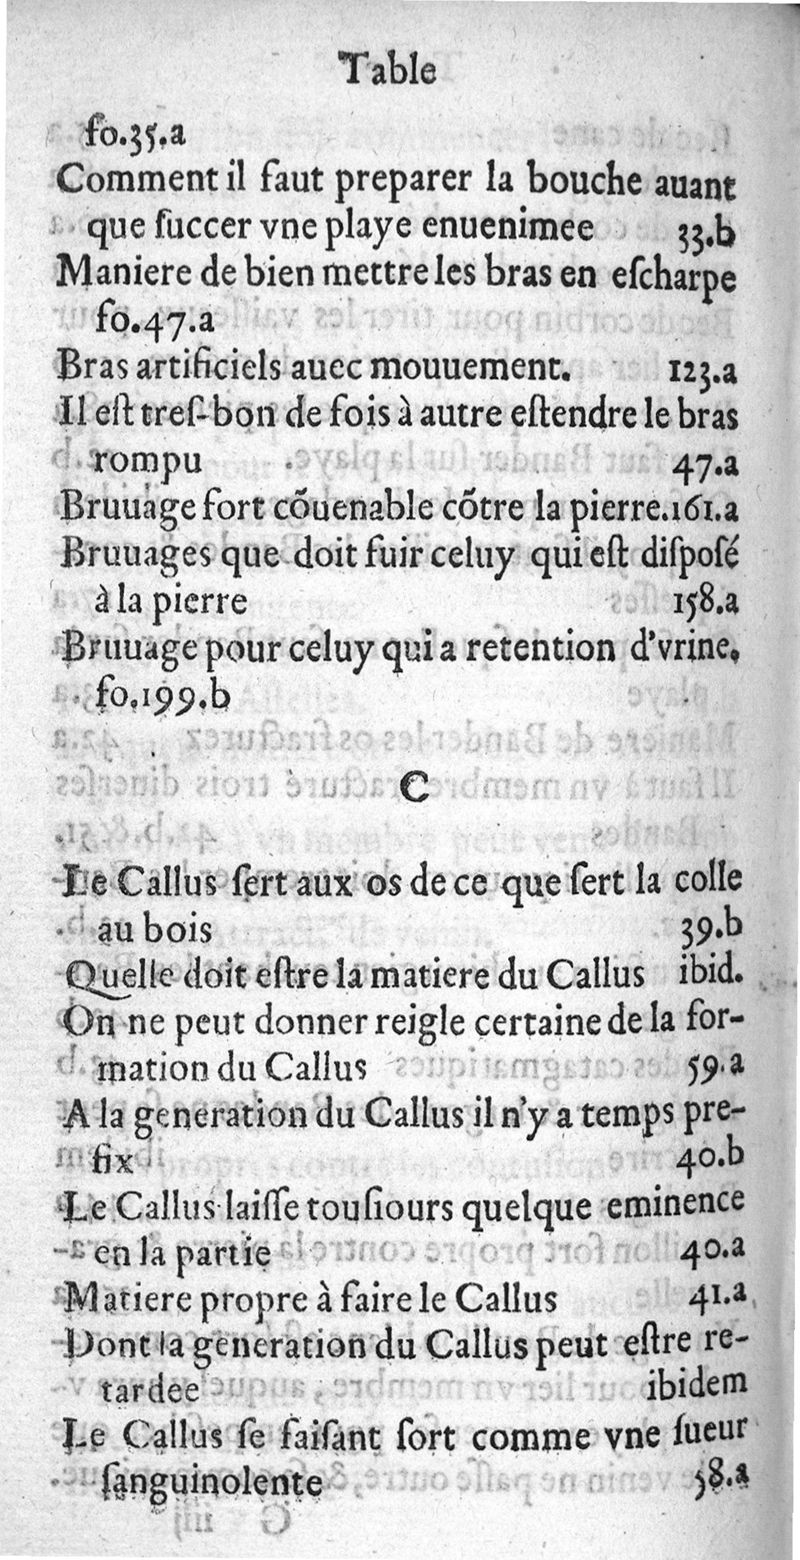 Table
fo.35.a
Comment il faut preparer la bouche auant
que ſuccer vne playe enuenimee 33.b
Maniere de bien mettre les bras en eſcharpe
fo.47.a
Bras artificiels auec mouuement. 123.a
Il eſt treſ-bon de fois à autre eſtendre le bras
rompu 47.a
Bruuage fort cõuenable cõtre la pierre.161.a
Bruuages que doit fuir celuy qui eſt diſpoſé
à la pierre 158.a
Bruuage pour celuy qui a retention d'vrine.
fo.199.b
C
Le Callus ſert aux os de ce que ſert la colle
au bois 39.b
Quelle doit eſtre la matiere du Callus ibid.
On ne peut donner reigle certaine de la for-
mation du Callus 59.a
A la generation du Callus il n'y a temps pre-
fix 40.b
Le Callus laiſſe touſiours quelque eminence
en la partie 40.a
Matiere propre à faire le Callus 41.a
Dont la generation du Callus peut eſtre re-
tardee ibidem
Le Callus ſe faiſant ſort comme vne ſueur
ſanguinolente 58.a